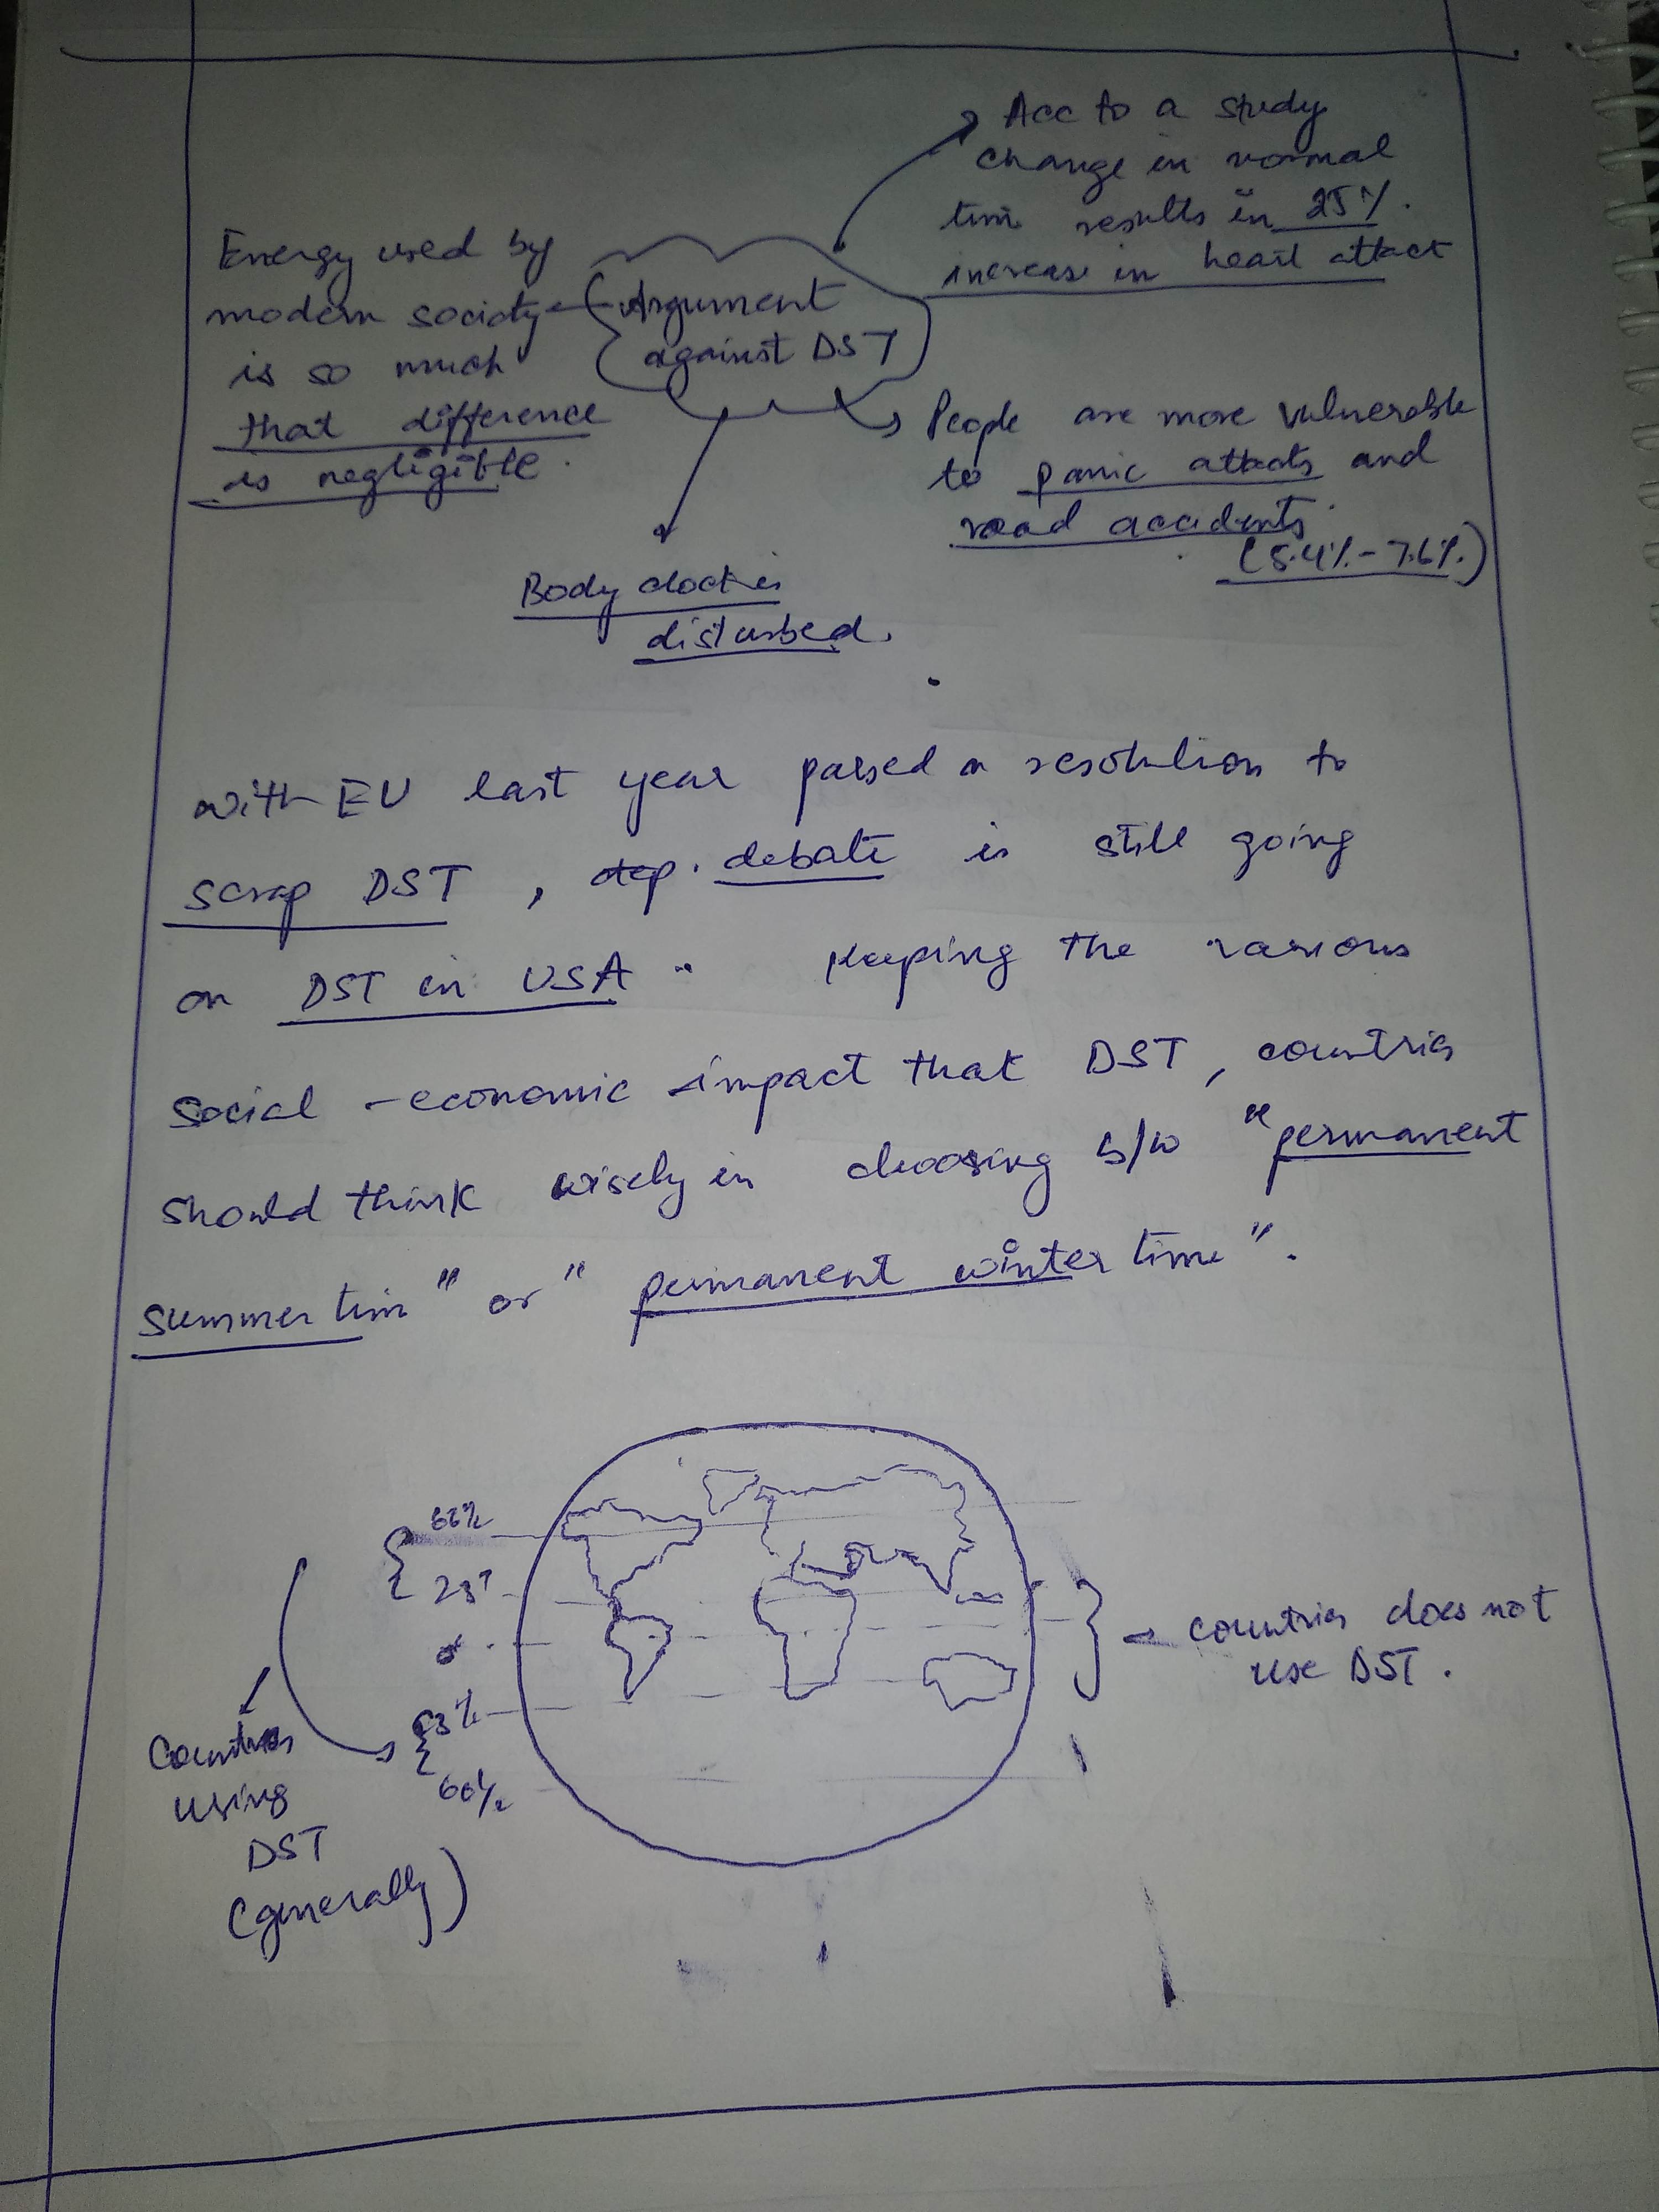 Acc to a study
change in normal
time results in 25%.
increase in heart attack
Energy used by
modern society
is so much
that difference
is negligible.
Argument
against DST
People are more vulnerable
to panic attacks and
road accidents.
(5.4%-7.6%.)
Body clock is
disturbed.
with EU last year passed a resolution to
scrap DST, debate is still going
on DST in USA. Keeping the various
social-economic impact that DST, countries
should think wisely in choosing b/w "permanent
summer time" or "permanent winter time".
66½
23½
0°
23½
66½
Countries
using
DST
(generally)
countries does not
use DST.